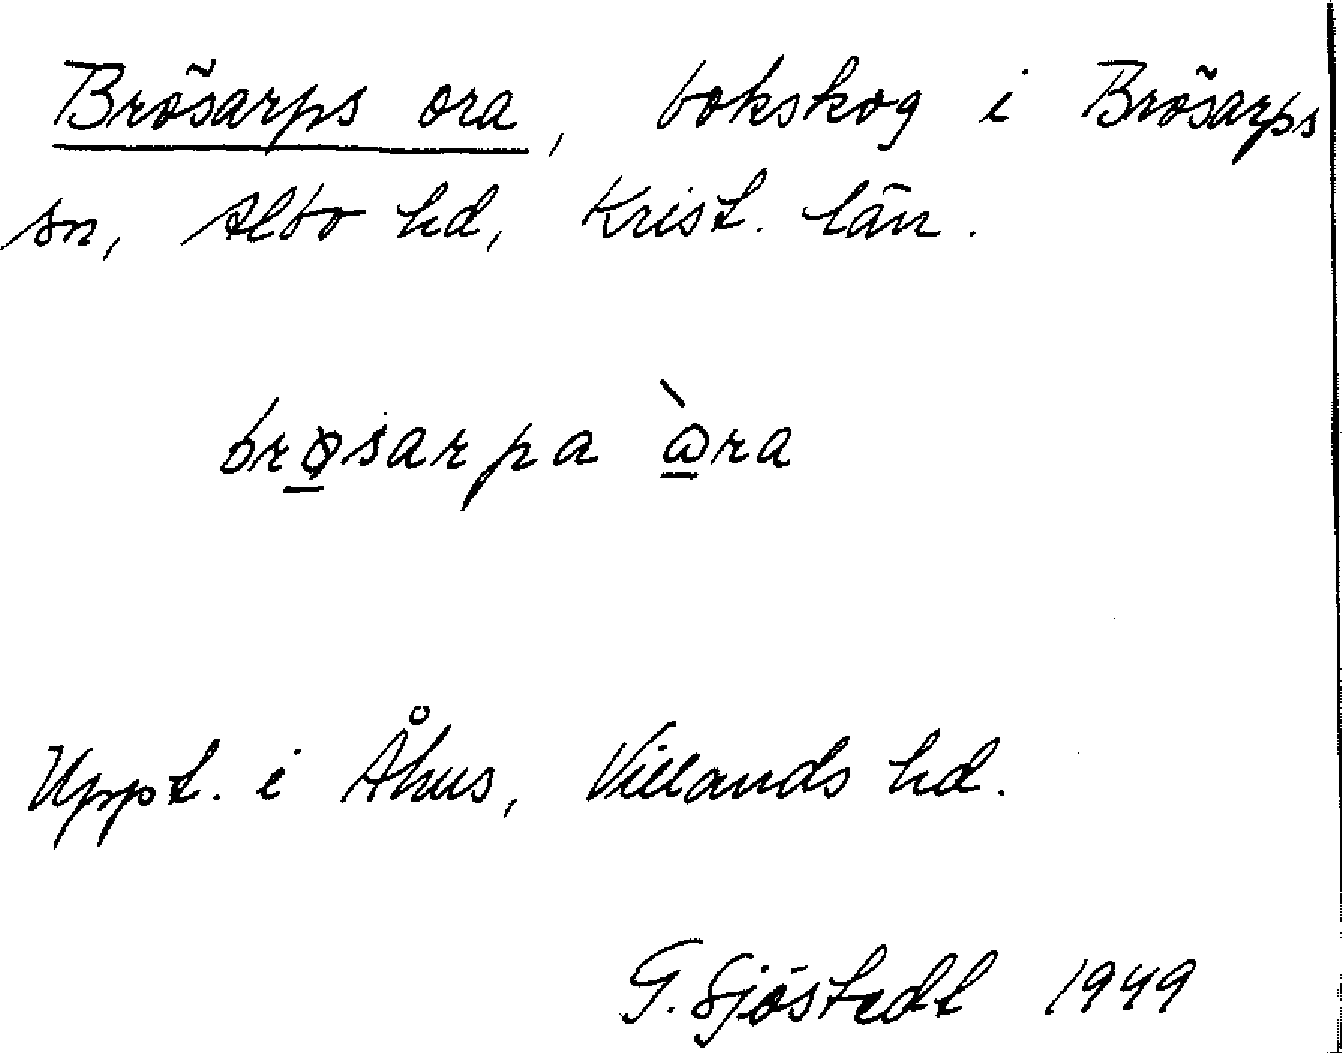 Brösarps ora, bokskog i Brösarps
sn, Albo hd, Krist. län.
brø̲sarpa ɷ̲̀ra
Uppt. i Åhus, Villands hd.
G. Sjöstedt 1949